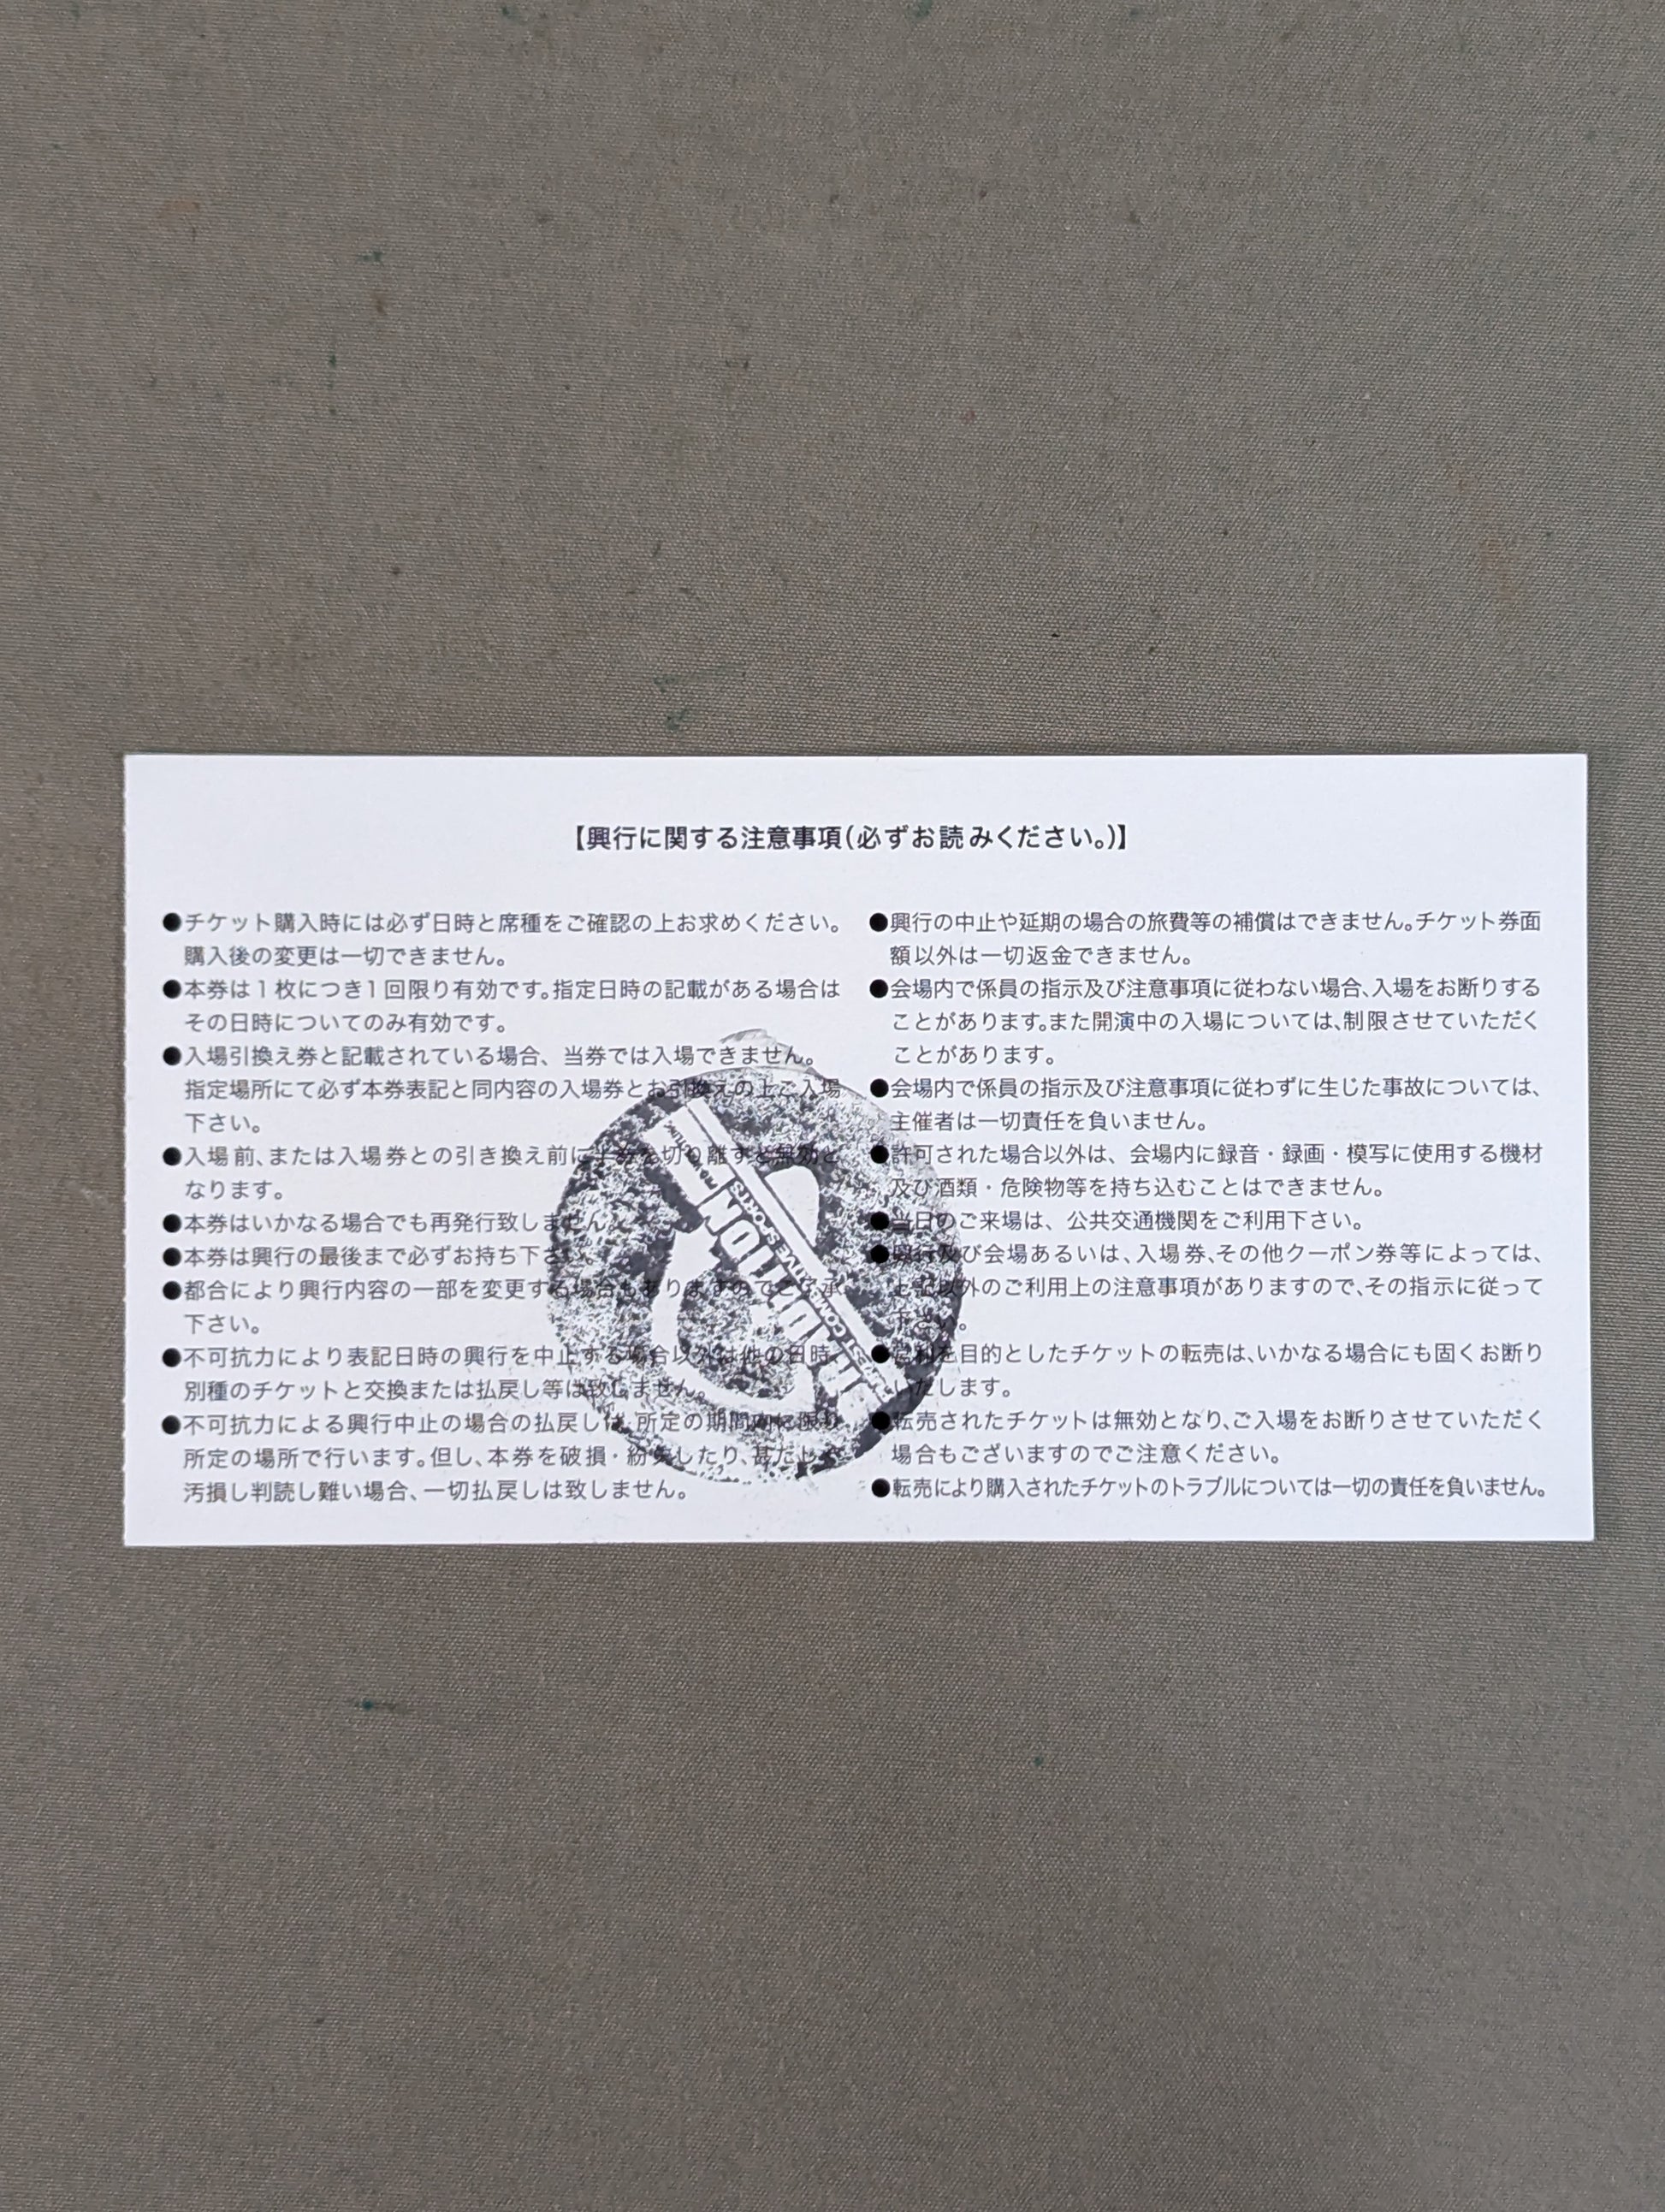 【興行に関する注意事項(必ずお読みください。)】
●チケット購入時には必ず日時と席種をご確認の上お求めください。
購入後の変更は一切できません。
●本券は1枚につき1回限り有効です。指定日時の記載がある場合は
その日時についてのみ有効です。
●入場引換え券と記載されている場合、当券では入場できません。
指定場所にて必ず本券表記と同内容の入場券とお引換えの上ご入場
下さい。
●入場前、または入場券との引き換え前に半券を切り離すと無効と
なります。
●本券はいかなる場合でも再発行致しません。
●本券は興行の最後まで必ずお持ち下さい。
●都合により興行内容の一部を変更する場合もありますのでご了承
下さい。
●不可抗力により表記日時の興行を中止する場合以外は他の日時、
別種のチケットと交換または払戻し等は致しません。
●不可抗力による興行中止の場合の払戻しは、所定の期間内に限り
所定の場所で行います。但し、本券を破損・紛失したり、甚だしく
汚損し判読し難い場合、一切払戻しは致しません。
●興行の中止や延期の場合の旅費等の補償はできません。チケット券面
額以外は一切返金できません。
●会場内で係員の指示及び注意事項に従わない場合、入場をお断りする
ことがあります。また開演中の入場については、制限させていただく
ことがあります。
●会場内で係員の指示及び注意事項に従わずに生じた事故については、
主催者は一切責任を負いません。
●許可された場合以外は、会場内に録音・録画・模写に使用する機材
及び酒類・危険物等を持ち込むことはできません。
●当日のご来場は、公共交通機関をご利用下さい。
●興行及び会場あるいは、入場券、その他クーポン券等によっては、
上記以外のご利用上の注意事項がありますので、その指示に従って
下さい。
●営利を目的としたチケットの転売は、いかなる場合にも固くお断り
いたします。
●転売されたチケットは無効となり、ご入場をお断りさせていただく
場合もございますのでご注意ください。
●転売により購入されたチケットのトラブルについては一切の責任を負いません。